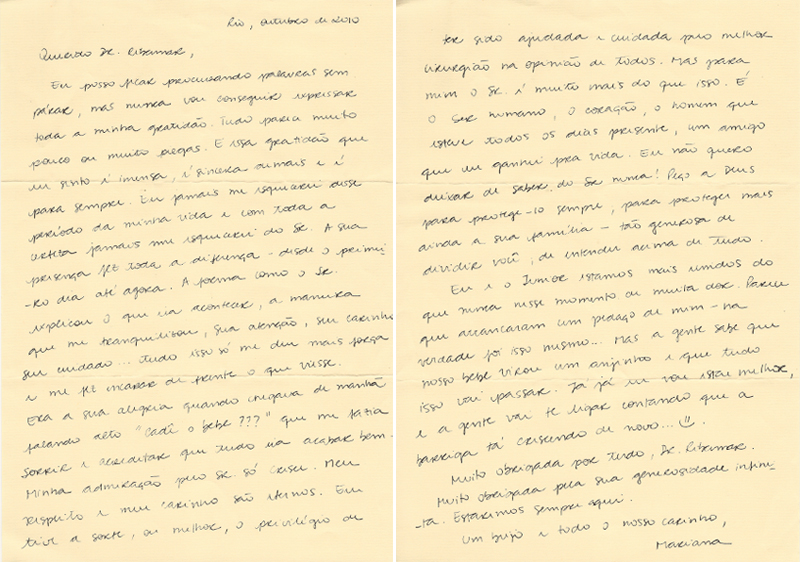 Rio, outubro de 2010
Querido Dr. Ribamar,
Eu posso ficar procurando palavras sem
parar, mas nunca vou conseguir expressar
toda a minha gratidão. Tudo parece muito
pouco ou muito piegas. E essa gratidão que
eu sinto é imensa, é sincera demais e é
para sempre. Eu jamais me esquecerei desse
período da minha vida e com toda a
certeza jamais me esquecerei do Sr. A sua
presença fez toda a diferença - desde o primei-
-ro dia até agora. A forma como o Sr.
explicou o que ia acontecer, a maneira
que me tranquilizou, sua atenção, seu carinho,
seu cuidado... tudo isso só me deu mais força
e me fez encarar de frente o que viesse.
Era a sua alegria quando chegava de manhã
falando alto "Cadê o bebê???" que me fazia
sorrir e acreditar que tudo ia acabar bem.
Minha admiração pelo Sr. só cresce. Meu
respeito e meu carinho são eternos. Eu
tive a sorte, ou melhor, o privilégio de
ter sido ajudada e cuidada pelo melhor
cirurgião na opinião de todos. Mas para
mim o Sr. é muito mais do que isso. É
o ser humano, o coração, o homem que
esteve todos os dias presente, um amigo
que eu ganhei pra vida. Eu não quero
deixar de saber do Sr nunca! Peço a Deus
para protege-lo sempre, para proteger mais
ainda a sua família - tão generosa de
dividir você, de entender acima de tudo.
Eu e o Junior estamos mais unidos do
que nunca nesse momento de muita dor. Parece
que arrancaram um pedaço de mim - na
verdade foi isso mesmo... Mas a gente sabe que
nosso bebê virou um anjinho e que tudo
isso vai passar. Já já eu vou estar melhor,
e a gente vai te ligar contando que a
barriga tá crescendo de novo...
Muito obrigada por tudo, Dr. Ribamar.
Muito obrigada pela sua generosidade infini-
-ta. Estaremos sempre aqui.
Um beijo e todo o nosso carinho,
Mariana